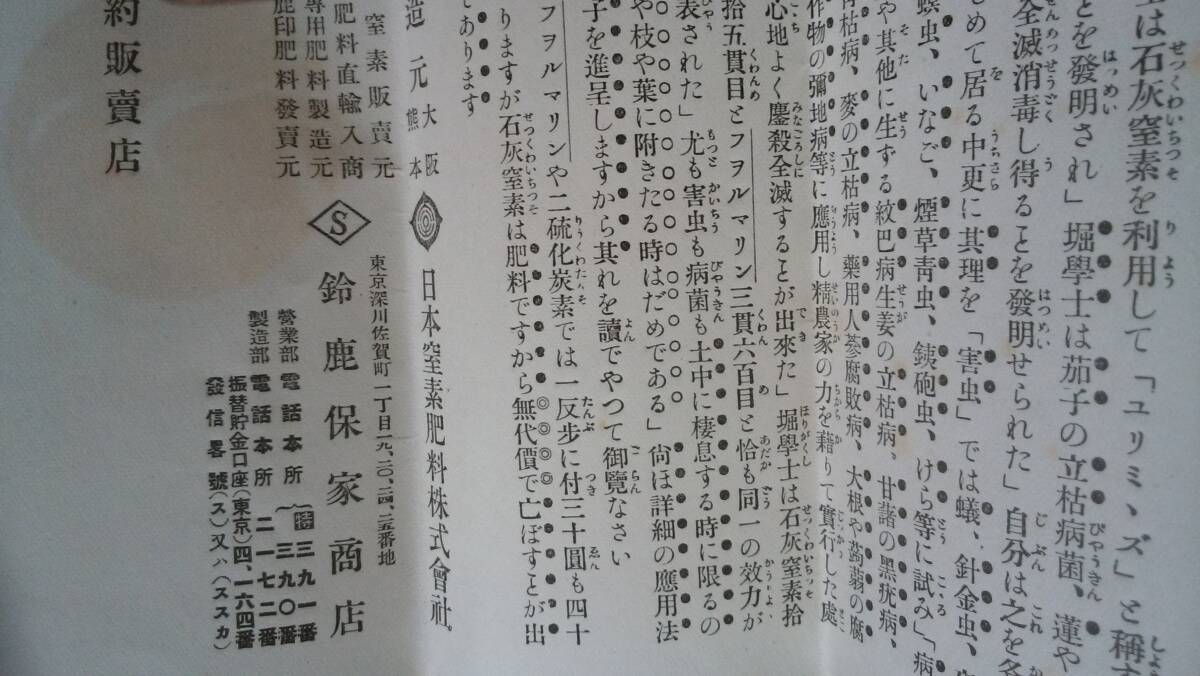 は石灰窒素を利用して「ユリミヽズ」と稱
とを發明され」堀學士は茄子の立枯病菌、蓮や
全滅消毒し得ることを發明せられた」自分は之を各
めて居る中更に其理を「害虫」では蟻、針金虫、
螟虫、いなご、煙草靑虫、銕砲虫、けら等に試み」「病
や其他に生ずる紋巴病生姜の立枯病、甘諸の黑疣病、
靑枯病、麥の立枯病、藥用人蔘腐敗病、大根や蒟蒻の腐
作物の彌地病等に應用し精農家の力を藉りて實行した處
心地よく鏖殺全滅することが出來た」堀學士は石灰窒素拾
拾五貫目とフヲルマリン三貫六百目と恰も同一の效力が
表された」尤も害虫も病菌も土中に棲息する時に限るの
や枝や葉に附きたる時はだめである」尙は詳細の應用法
子を進呈しますから其れを讀でやつて御覽なさい
フヲルマリンや二硫化炭素では一反步に付三十圓も四十
りますが石灰窒素は肥料ですから無代價で亡ぼすとが出
であります
造元 大阪 熊本 日本窒素肥料株式會社
窒素販賣元
肥料直輸入商
專用肥料製造元
鹿印肥料發賣元
S 鈴鹿保家商店
東京深川佐賀町一丁目一九、二〇、二四、二五番地
營業部 電話本所 (特)三九一番 三九〇番
製造部 電話本所 二一七二番
振替貯金口座(東京)四、一六四番
發信畧號(ス)又ハ(ススカ)
約販賣店